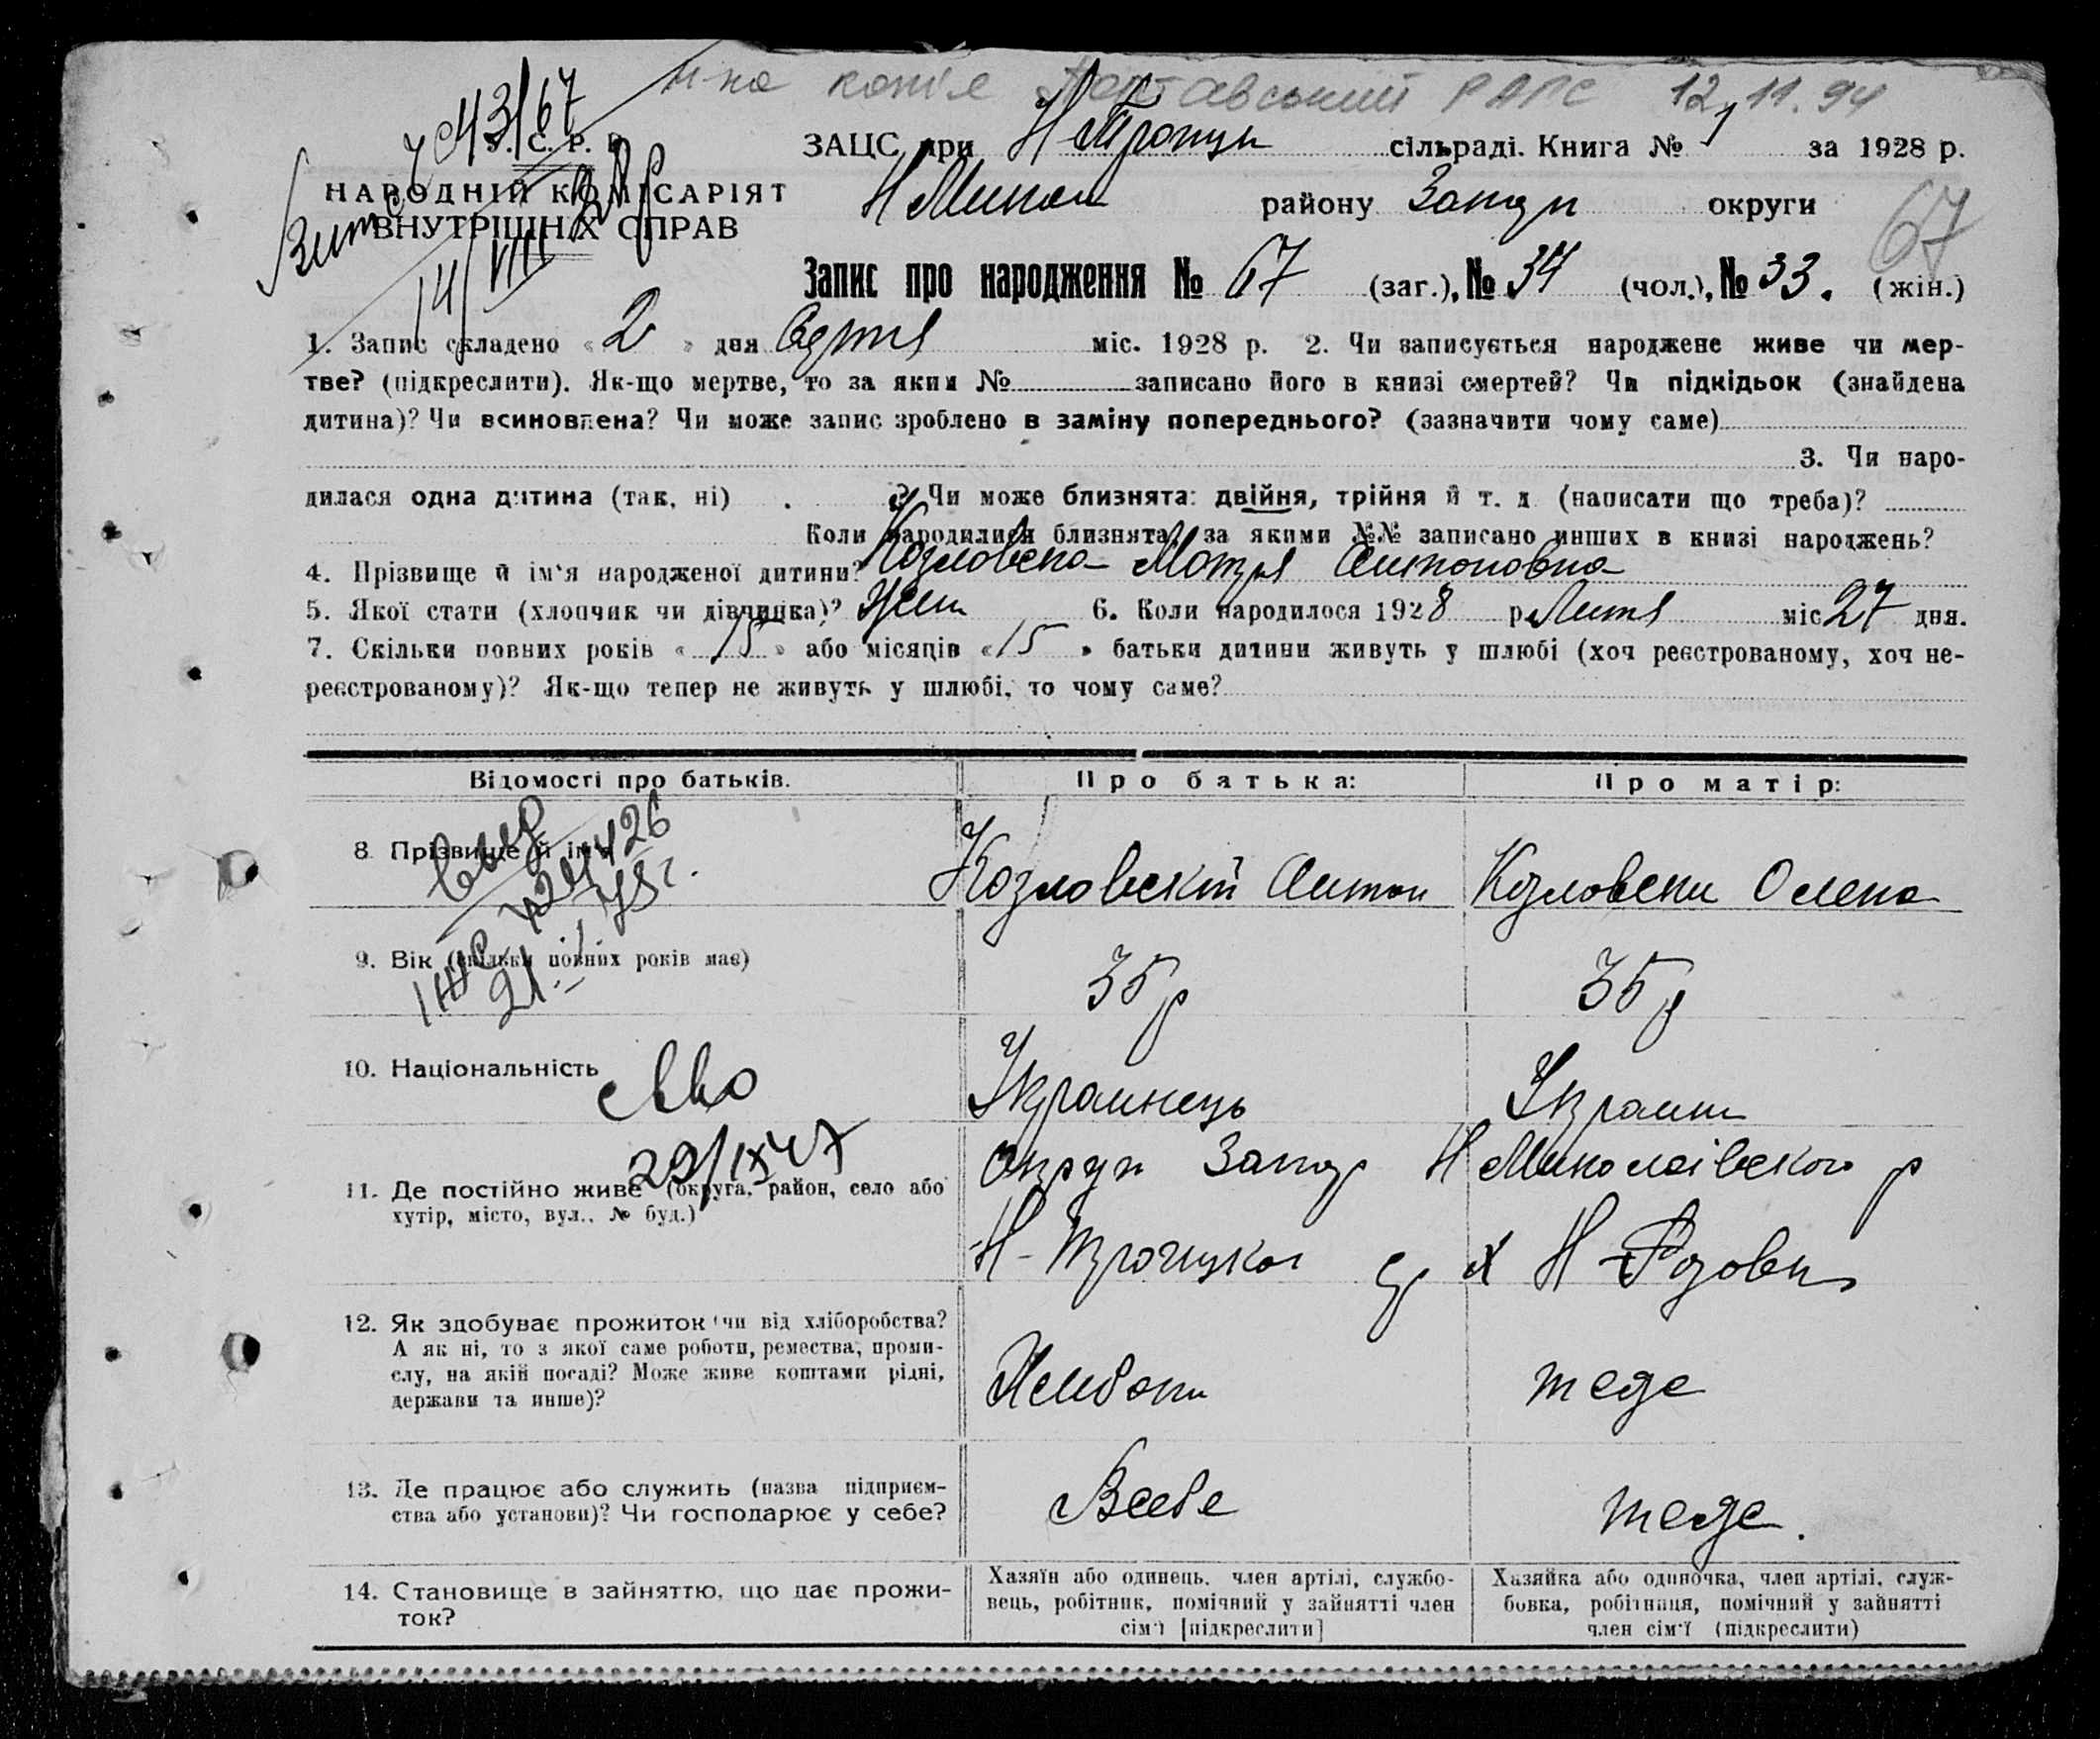 копія Полтавський РАГС 12.11.94
43/67
У. С. Р. Р.
ЗАЦС при Н Троицк сільраді. Книга № 1 за 1928 р.
НАРОДНІЙ КОМІСАРІЯТ
ВНУТРІШНІХ СПРАВ
Н Микол району Запор округи
67
14/VIII
Запис про народження № 67 (заг.), № 34 (чол.), № 33. (жін.)
1. Запис складено « 2 » дня Серпня міс. 1928 р. 2. Чи записується народжене живе чи мер-
тве? (підкреслити). Як-що мертве, то за яким № записано його в книзі смертей? Чи підкідьок (знайдена
дитина)? Чи всиновлена? Чи може запис зроблено в заміну попереднього? (зазначити чому саме)
3. Чи наро-
дилася одна дитина (так, ні) ? Чи може близнята: двійня, трійня й т. д. (написати що треба)?
Коли народилися близнята, за якими №№ записано инших в книзі народжень?
4. Прізвище й ім'я народженої дитини? Козловска Мотря Антоновна
5. Якої стати (хлопчик чи дівчинка)? Жен 6. Коли народилося 1928 р. Липня міс 27 дня.
7. Скільки повних років « 15 » або місяців « 15 » батьки дитини живуть у шлюбі (хоч реєстрованому, хоч не-
реєстрованому)? Як-що тепер не живуть у шлюбі, то чому саме?
Відомості про батьків. Про батька: Про матір:
8. Прізвище й ім'я Козловскій Антон Козловски Олена
9. Вік (скільки повних років має) 35 р 35 р
10. Національність Украинець Украин
29/IX 47
11. Де постійно живе (округа, район, село або Округи Запор Н Миколаівского р
хутір, місто, вул., № буд.)
Н-Троицкої с/р х Н Розовка
12. Як здобуває прожиток (чи від хліборобства?
А як ні, то з якої саме роботи, ремества, проми-
слу, на якій посаді? Може живе коштами рідні,
держави та инше)?
Хлибопаш теде
13. Де працює або служить (назва підприєм-
ства або установи)? Чи господарює у себе?
Всебе теде.
14. Становище в зайняттю, що дає прожи-
ток?
Хазяїн або одинець, член артілі, службо-
вець, робітник, помічний у зайнятті член
сім'ї [підкреслити]
Хазяйка або одиночка, член артілі, служ-
бовка, робітниця, помічний у зайнятті
член сім'ї (підкреслити)